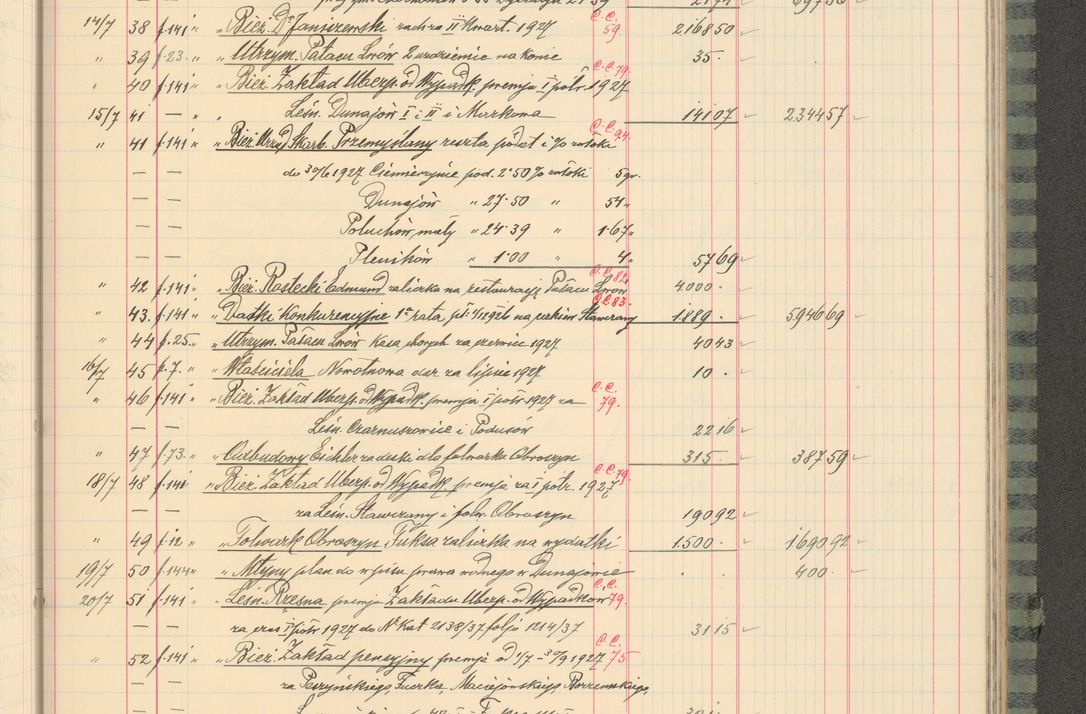 14/7 38 f.141 „ „ Bież. Dr Janiszewski za II Kwart. 1927 C.C. 59. 216850
„ 39 f.23. „ „ Utrzym. Pałacu Lwów 2 na konie 35.
„ 40 f.141 „ „ Bież. Zakład Ubezp. od Wypadk. premja I półr. 1927 C.C. 79.
15/7 41 — „ „ Leśn. Dunajów I i II i Murkowa 14107 234457
„ 41 f.141 „ „ Bież. Urząd Skarb. Przemyślany reszta podat i % zwłoki C.C. 94.
— — do 30/6 1927 Ciemierzynie pod. 2.50 % zwłoki 5 gr.
— — Dunajów „ 27.50 „ 54 „
— — Poluchów mały „ 24.39 „ 1.67 „
— — Pleników „ 1.00 „ 4 „ 5769
„ 42 f.141 „ „ Bież. Rastecki Edmund zaliczka na restaurację Pałacu Lwów C.C. 82. 4.000.
„ 43. f.141 „ „ Datki Konkurencyjne 1a rata, 1926 na Stawczany C.C. 83. 1.889. 594669
„ 44 f.25. „ „ Utrzym. Pałacu Lwów Kasa chorych za czerwiec 1927 4043
16/7 45 f.7. „ „ Właściciela Nowotnowa dar za lipiec 1927 10.
„ 46 f.141 „ „ Bież. Zakład Ubezp. od Wypadk. premja I półr. 1927 za C.C. 79.
— — Leśn. Czarnuszowice i Podusów 2216
„ 47 f.73. „ „ Odbudowy Eichler za deski dla folwarku Obroszyn 315. 38759
18/7 48 f.141 „ „ Bież. Zakład Ubezp. od Wypadk. premja za I półr. 1927 C.C. 79.
— — za Leśn. Stawczany i folw. Obroszyn 19092
„ 49 f.12 „ „ Folwark Obroszyn Fuksa zaliczka na wydatki 1.500. 169092
19/7 50 f.144 „ „ Młyny plan do wpisu prawa wodnego w Dunajowie . . 400.
20/7 51 f.141 „ „ Leśn. Rzęsna premja Zakładu Ubezp. od Wypadków C.C. 79.
— — za czas I półr 1927 do № Kat 2138/37 folja 1214/37 3115
„ 52 f.141 „ „ Bież. Zakład pensyjny premja od 1/7 – 30/9 1927 C.C. 75
— — za Peszyńskiego, Fuerka, Maciejowskiego, Borzemskiego,